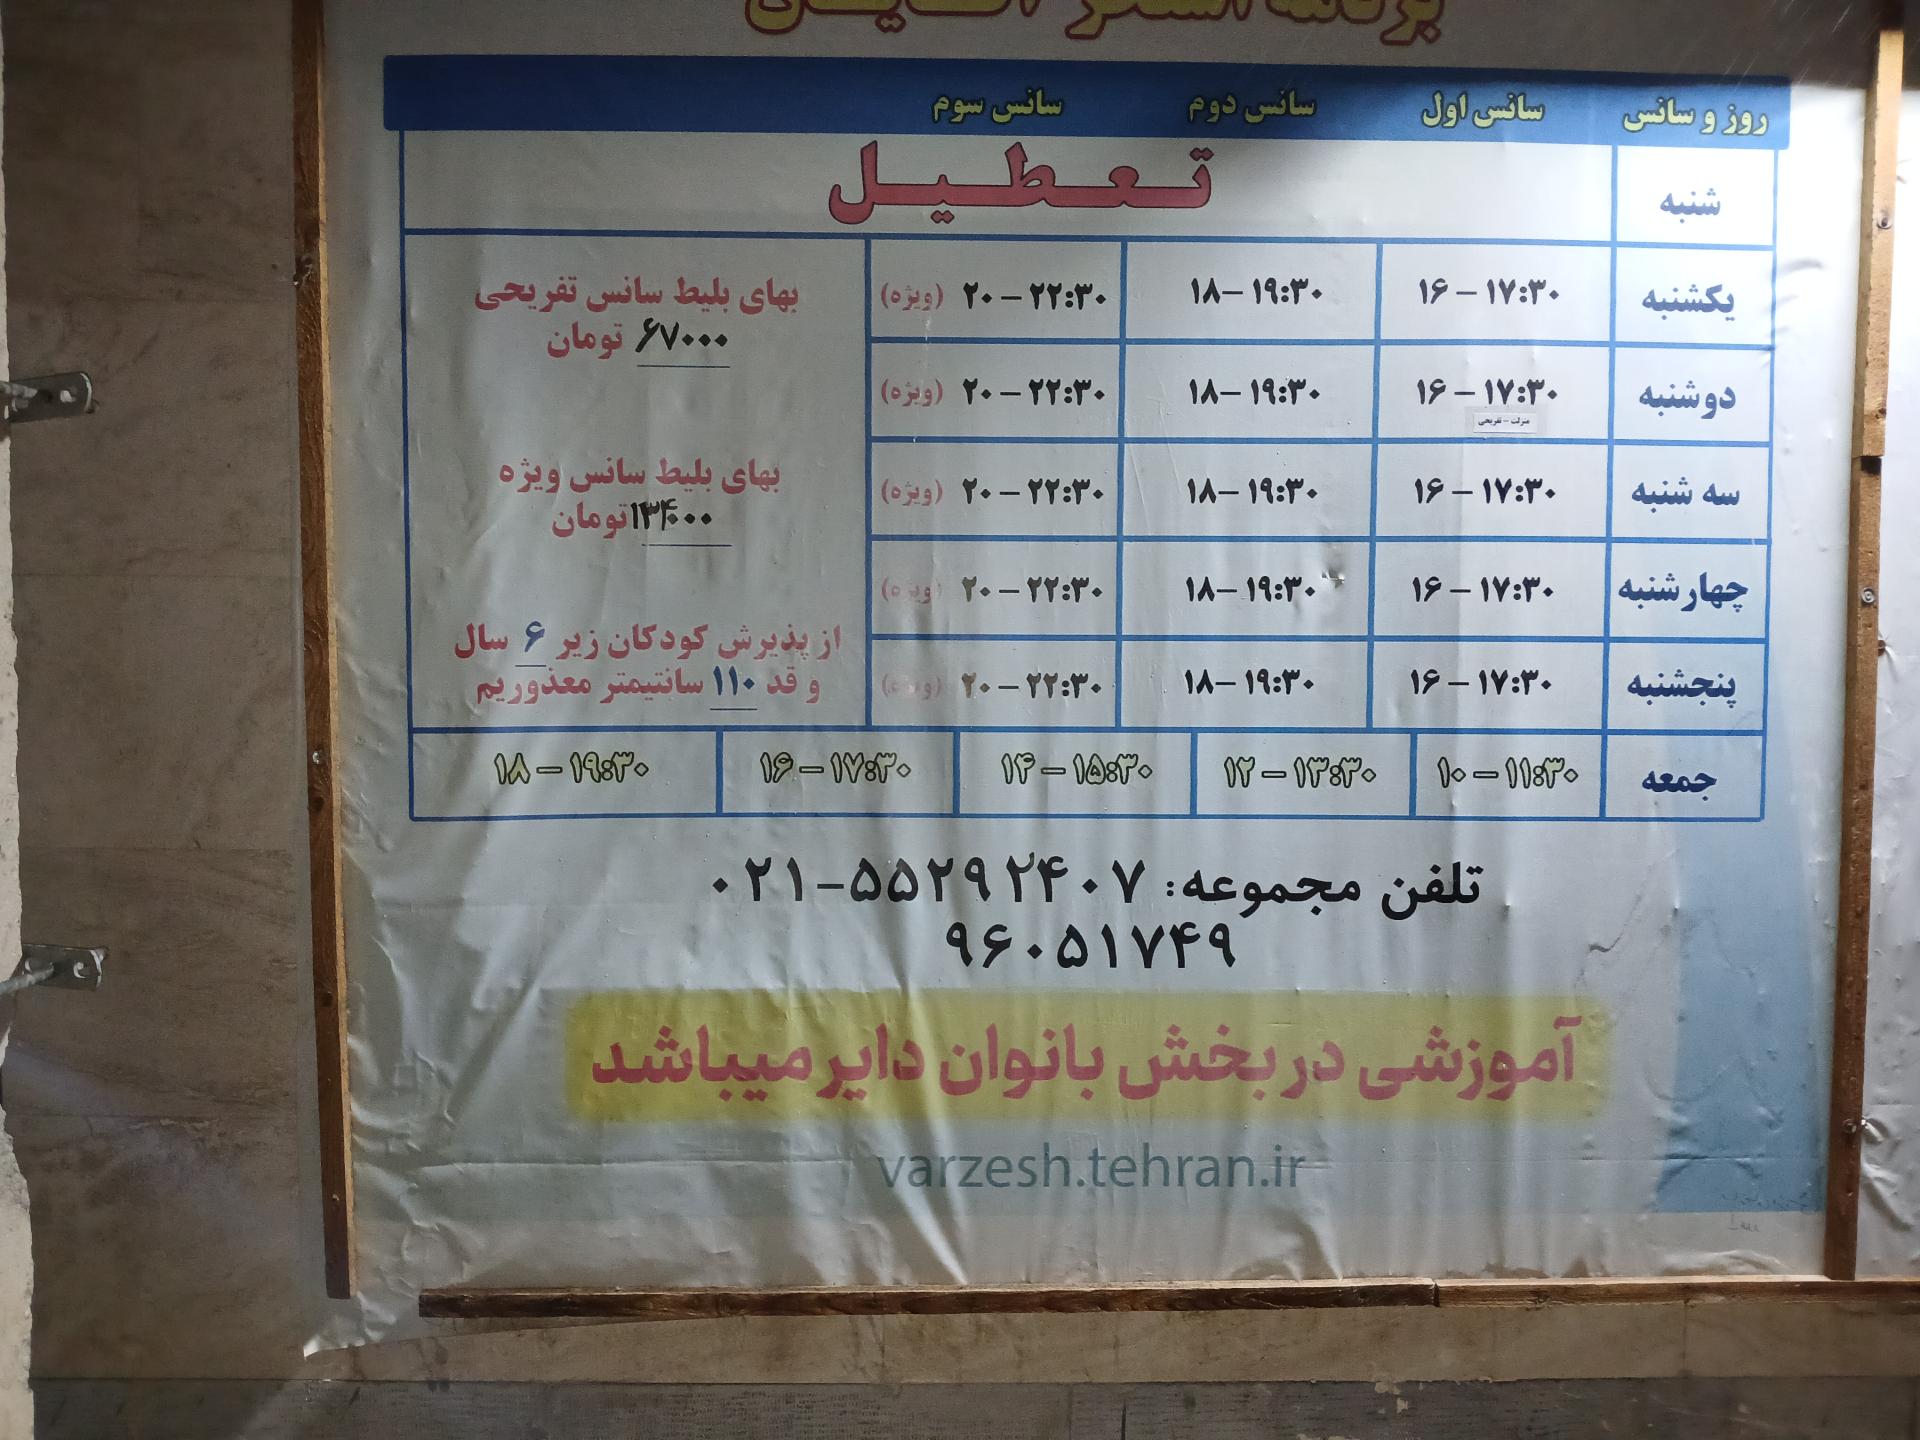 برنامه استخر آقایان
روز و سانس سانس اول سانس دوم سانس سوم
شنبه تعطیل
یکشنبه ۱۶ – ۱۷:۳۰ ۱۸– ۱۹:۳۰ ۲۰ – ۲۲:۳۰ (ویژه)
دوشنبه ۱۶ – ۱۷:۳۰ ۱۸– ۱۹:۳۰ ۲۰ – ۲۲:۳۰ (ویژه)
منزلت – تفریحی
سه شنبه ۱۶ – ۱۷:۳۰ ۱۸– ۱۹:۳۰ ۲۰ – ۲۲:۳۰ (ویژه)
چهارشنبه ۱۶ – ۱۷:۳۰ ۱۸– ۱۹:۳۰ ۲۰ – ۲۲:۳۰ (ویژه)
پنجشنبه ۱۶ – ۱۷:۳۰ ۱۸– ۱۹:۳۰ ۲۰ – ۲۲:۳۰ (ویژه)
بهای بلیط سانس تفریحی
۶۷۰۰۰ تومان
بهای بلیط سانس ویژه
۱۳۴۰۰۰تومان
از پذیرش کودکان زیر ۶ سال
و قد ۱۱۰ سانتیمتر معذوریم
جمعه ۱۰ – ۱۱:۳۰ ۱۲ – ۱۳:۳۰ ۱۴ – ۱۵:۳۰ ۱۶ – ۱۷:۳۰ ۱۸ – ۱۹:۳۰
تلفن مجموعه: ۰۲۱-۵۵۲۹۲۴۰۷
۹۶۰۵۱۷۴۹
آموزشی در بخش بانوان دایر میباشد
varzesh.tehran.ir